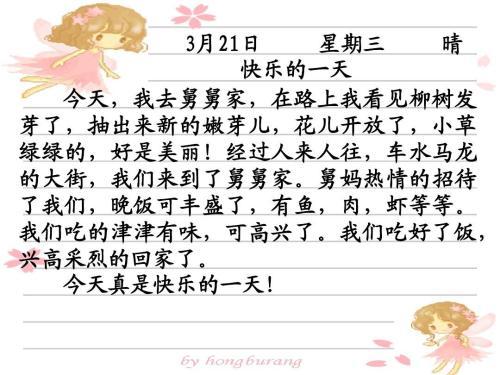 3月21日 星期三 晴
快乐的一天
今天，我去舅舅家，在路上我看见柳树发
芽了，抽出来新的嫩芽儿，花儿开放了，小草
绿绿的，好是美丽！经过人来人往，车水马龙
的大街，我们来到了舅舅家。舅妈热情的招待
了我们，晚饭可丰盛了，有鱼，肉，虾等等。
我们吃的津津有味，可高兴了。我们吃好了饭，
兴高采烈的回家了。
今天真是快乐的一天！
by hongburang